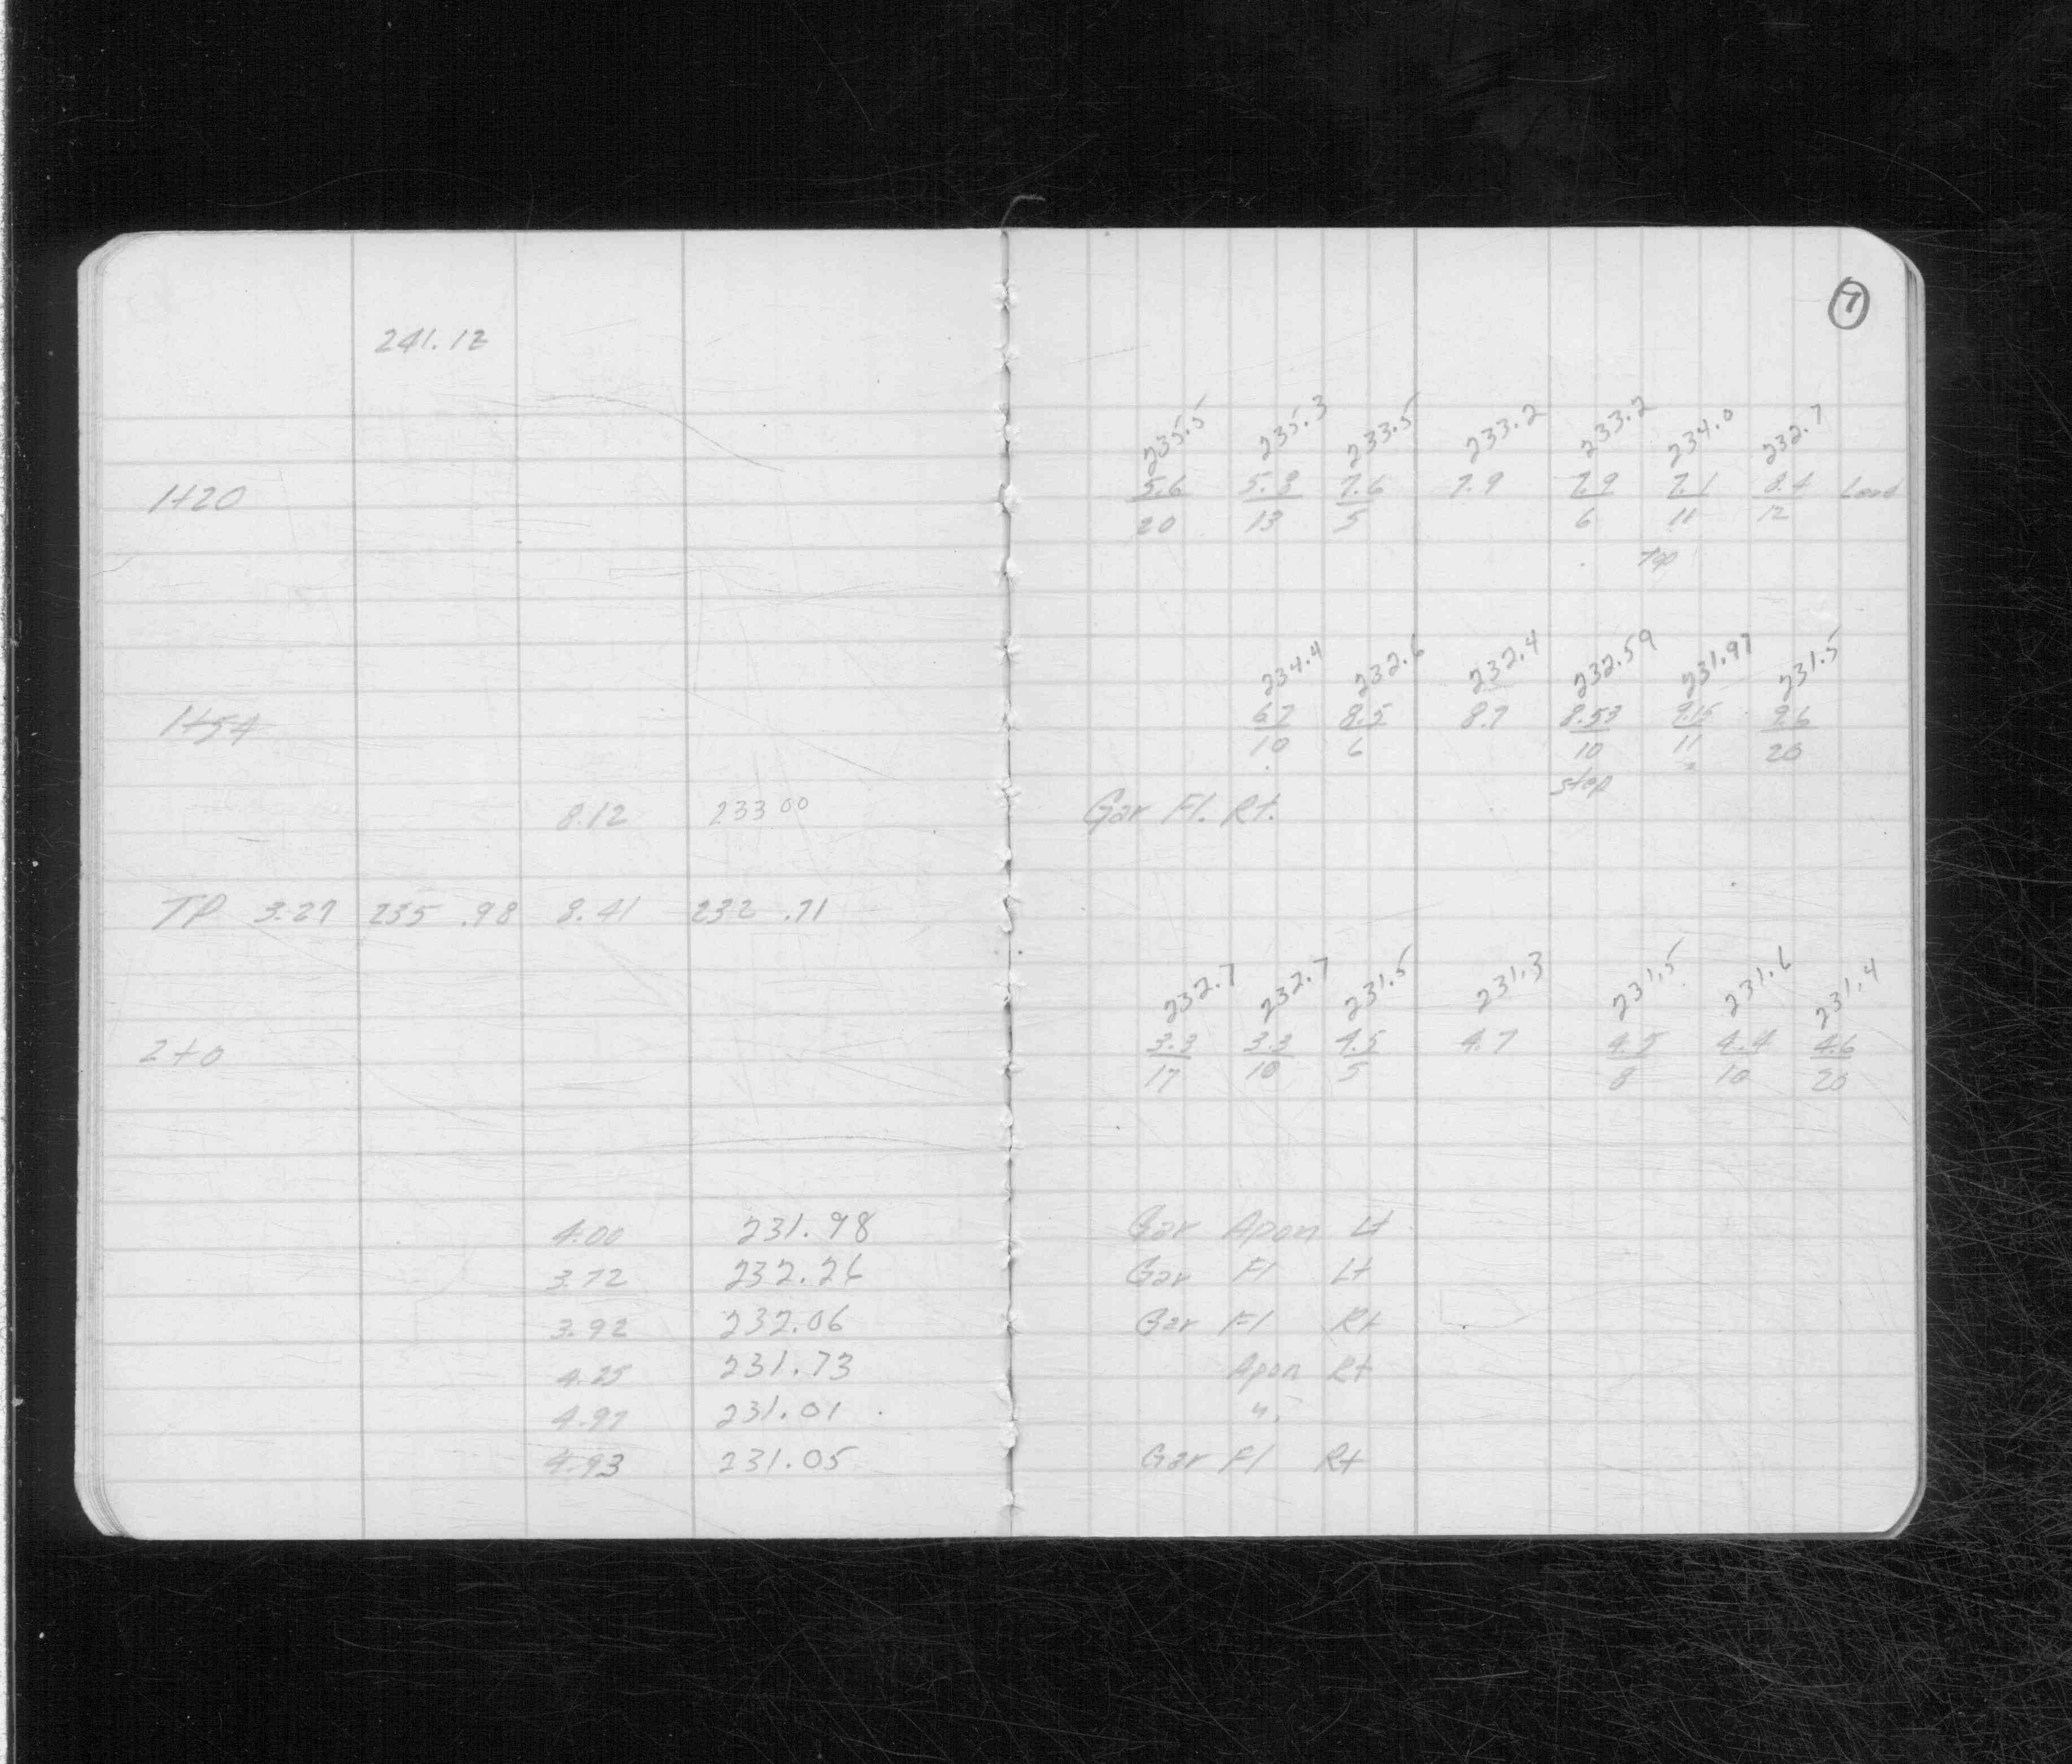 7
241.12
235.5 235.3 233.5 233.2 233.2 234.0 232.7
1+20 5.6 5.8 7.6 7.9 7.9 7.1 8.4
20 13 5 6 11 12
Top
234.4 232.6 232.4 232.59 231.97 231.5
1+54 6.7 8.5 8.7 8.53 9.15 9.6
10 6 10 11 20
step
8.12 233.00 Gar Fl. Rt.
TP 3.27 235.98 8.41 232.71
232.7 232.7 231.5 231.3 231.5 231.6 231.4
2+0 3.3 3.3 4.5 4.7 4.5 4.4 4.6
17 10 5 8 10 20
4.00 231.98 Gar Apon Lt
3.72 232.26 Gar Fl Lt
3.92 232.06 Gar Fl Rt
4.25 231.73 Apon Rt
4.97 231.01 "
4.93 231.05 Gar Fl Rt